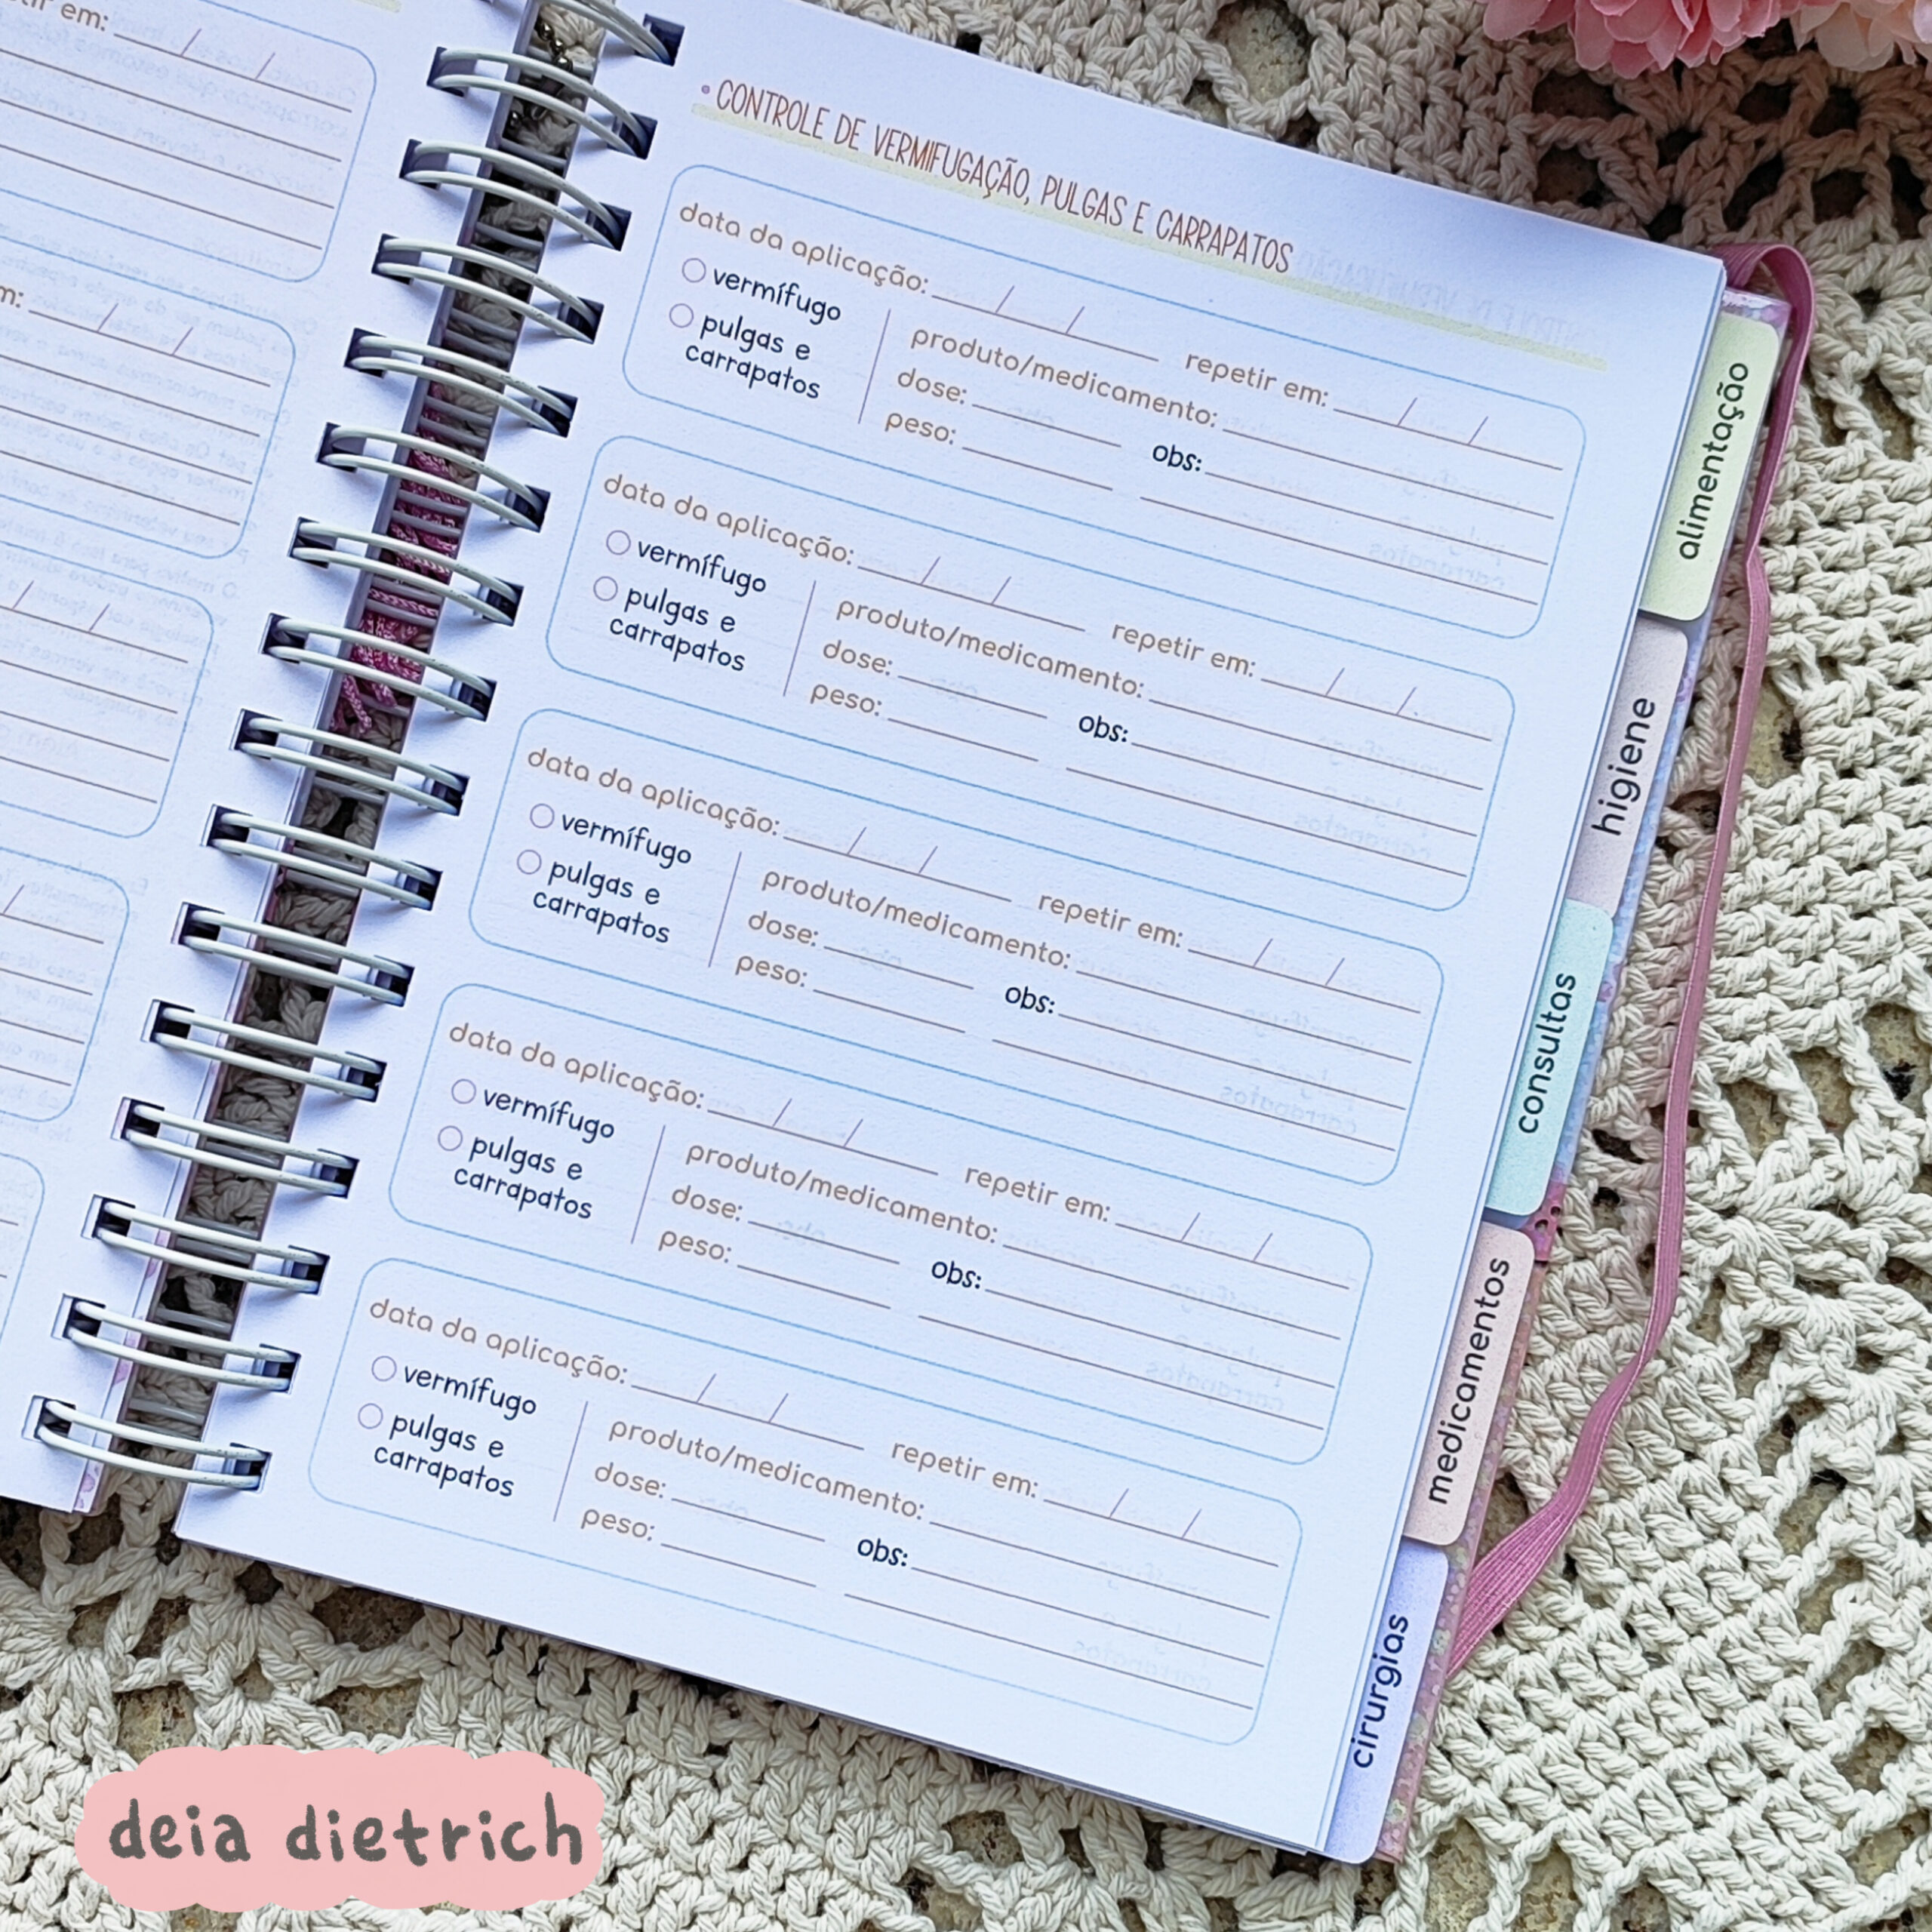 tir em: / /
em: / /
/ /
/
• CONTROLE DE VERMIFUGAÇÃO, PULGAS E CARRAPATOS
data da aplicação: / / repetir em: / /
vermífugo
pulgas e
carrapatos
produto/medicamento:
dose: obs:
peso:
data da aplicação: / / repetir em: / /
vermífugo
pulgas e
carrapatos
produto/medicamento:
dose: obs:
peso:
data da aplicação: / / repetir em: / /
vermífugo
pulgas e
carrapatos
produto/medicamento:
dose: obs:
peso:
data da aplicação: / / repetir em: / /
vermífugo
pulgas e
carrapatos
produto/medicamento:
dose: obs:
peso:
data da aplicação: / / repetir em: / /
vermífugo
pulgas e
carrapatos
produto/medicamento:
dose: obs:
peso:
alimentação
higiene
consultas
medicamentos
cirurgias
deia dietrich